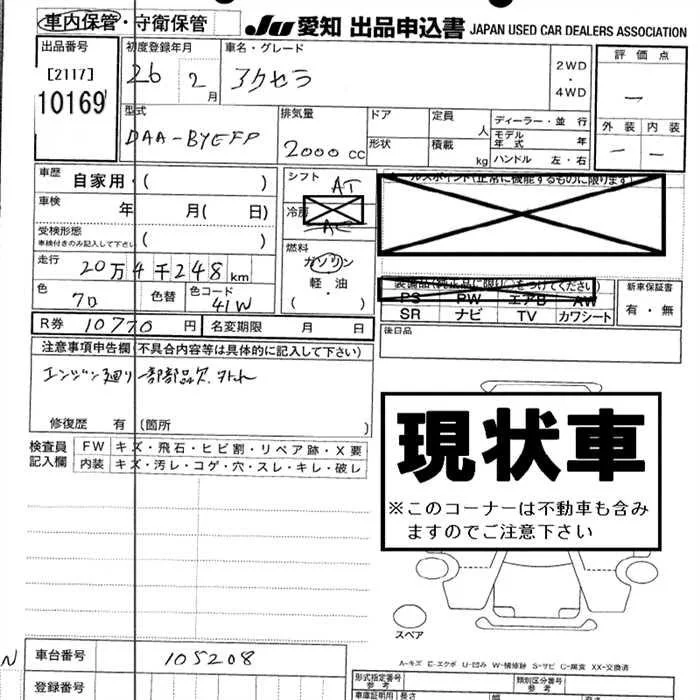 車内保管・守衛保管
JU 愛知 出品申込書 JAPAN USED CAR DEALERS ASSOCIATION
出品番号
[2117]
10169
初度登録年月
26 2月
車名・グレード
アクセラ
2WD
・
4WD
評価点
—
外装 内装
— —
型式
DAA-BYEFP
排気量
2000cc
ドア
形状
定員
人
積載
kg
ディーラー・並行
モデル年式 年
ハンドル 左・右
車歴
自家用・( )
車検
年 月( 日)
受検形態
車検付きのみ記入して下さい ( )
走行
20万4千248km
色
クロ
色替
色コード
41W
シフト
AT
冷房
AC
燃料
ガソリン
軽・油
( ・ )
セールスポイント(正常に機能するものに限ります)
装備品(純正品に限り○をつけてください)
PS PW エアB AW
SR ナビ TV カワシート
新車保証書
有・無
後日品
R券 10770円
名変期限 月 日
注意事項申告欄(不具合内容等は具体的に記入して下さい)
エンジン廻り一部部品欠
修復歴 有 (箇所 )
検査員記入欄
FW キズ・飛石・ヒビ割・リペア跡・X要
内装 キズ・汚レ・コゲ・穴・スレ・キレ・破レ
現状車
※このコーナーは不動車も含み
ますのでご注意下さい
スペア
A-キズ E-エクボ U-凹み W-補修跡 S-サビ C-腐食 XX-交換済
N
車台番号
105208
登録番号
形式指定番号
参考
類別区分番号
参考
車庫証明用 長さ